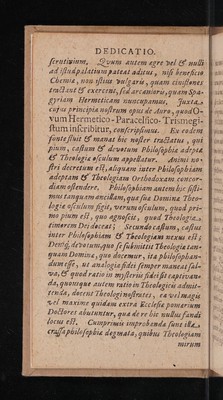 DEDICATIO.
scrutinium. Quum autem ægre vel & nulli
ad istud palatium pateat aditus, nisi beneficio
Chemiæ, non istius vulgaris, quam ciniflones
tractant & exercent, sed arcanioris, quam Spa-
gyriam Hermeticam nuncupamus. Juxta
cujus principia nostrum opus de Auro, quod Q-
vum Hermetico-Paracelsico-Trismegi-
stum inscribitur, conscripsimus. Ex eodem
fonte fluit & manat hic noster tractatus, qui
pium, castum & devotum Philosophiæ adeptæ
& Theologiæ osculum appellatur. Animi no-
stri decretum est, aliquam inter Philosophiam
adeptam & Theologiam Orthodoxam concor-
diam ostendere. Philosophiam autem hic sisti-
mus tanquam ancillam, quæ suæ Dominæ Theo-
logiæ osculum figit, verum osculum, quod pri-
mo pium est, quo agnoscit, quod Theologia
timorem Dei doceat; Secundo castum, castus
inter Philosophiam & Theologiam nexus est;
Deniq, devotum, quo se submittit Theologiæ tan-
quam Dominæ, quo docemur, ita philosophan-
dum esse, ut analogia fidei semper maneat sal-
va, & quod ratio in mysteriis fidei sit captivan-
da, quousque autem ratio in Theologicis admit-
tenda, docent Theologi nostrates, ea vel magis
vel maxime quidam extra Ecclesiæ pomærium
Doctores abutuntur, qua de re hic nullus fandi
locus est. Cumprimis improbanda sunt illa
crassa philosophiæ dogmata, quibus Theologiam
mirum